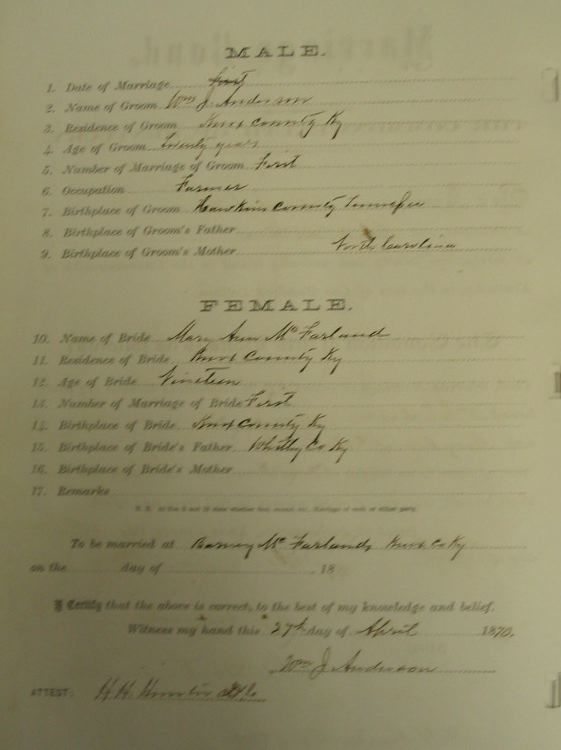 MALE.
1. Date of Marriage First
2. Name of Groom Wm J. Anderson
3. Residence of Groom Knox County Ky
4. Age of Groom twenty years
5. Number of Marriage of Groom First
6. Occupation Farmer
7. Birthplace of Groom Hawkins County Tennessee
8. Birthplace of Groom's Father
9. Birthplace of Groom's Mother North Carolina
FEMALE.
10. Name of Bride Mary Ann McFarland
11. Residence of Bride Knox County Ky
12. Age of Bride Nineteen
13. Number of Marriage of Bride First
14. Birthplace of Bride Knox County Ky
15. Birthplace of Bride's Father Whitley Co Ky
16. Birthplace of Bride's Mother
17. Remarks
To be married at Barney McFarlands Knox Co Ky
on the day of 18
I Certify that the above is correct, to the best of my knowledge and belief.
Witness my hand this 27th day of April 1870.
Wm J Anderson
ATTEST: H. H.